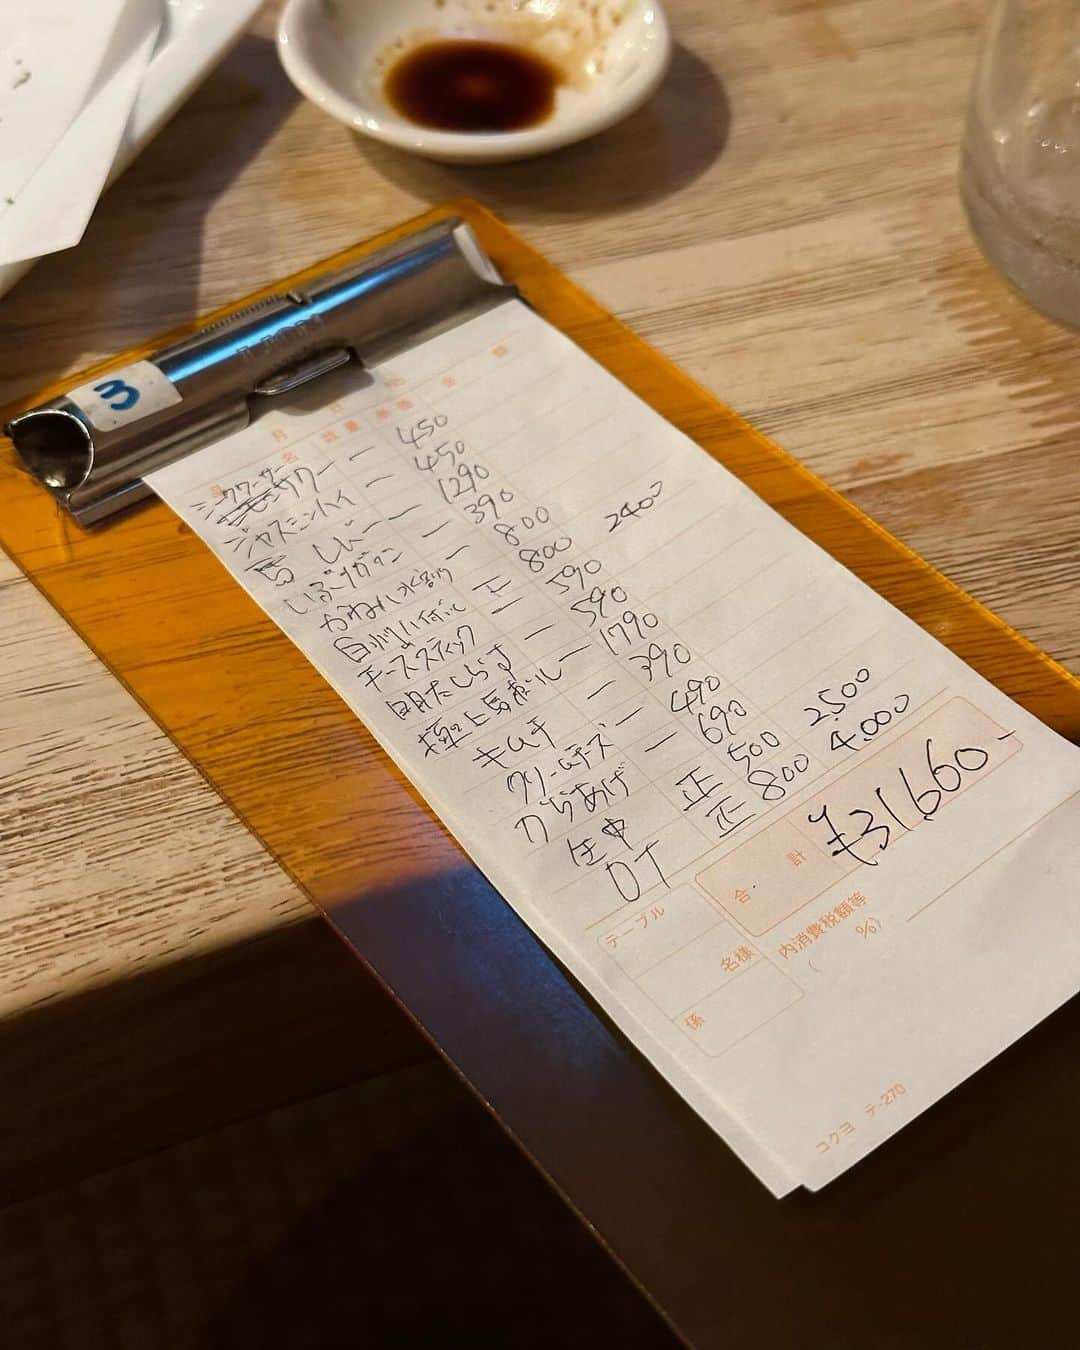 3
LION
月 日 No.
品 名 数 量 単 価 金 額
シークワーサーサワー 一 450
ジャスミンハイ 一 450
馬 レバー 一 1290
いぶりガッコ 一 390
水割り 一 800
白州ハイボール 下 800 2400
チーズスティック 一 590
明太しらす 一 590
極上馬 一 1790
キムチ 一 390
クリームチーズ 一 490
からあげ 一 690
生中 正 500 2,500
DT 正 800 4,000
合 計 ¥31,660-
テーブル
名様
係
内消費税額等
( %)
コクヨ テ-270